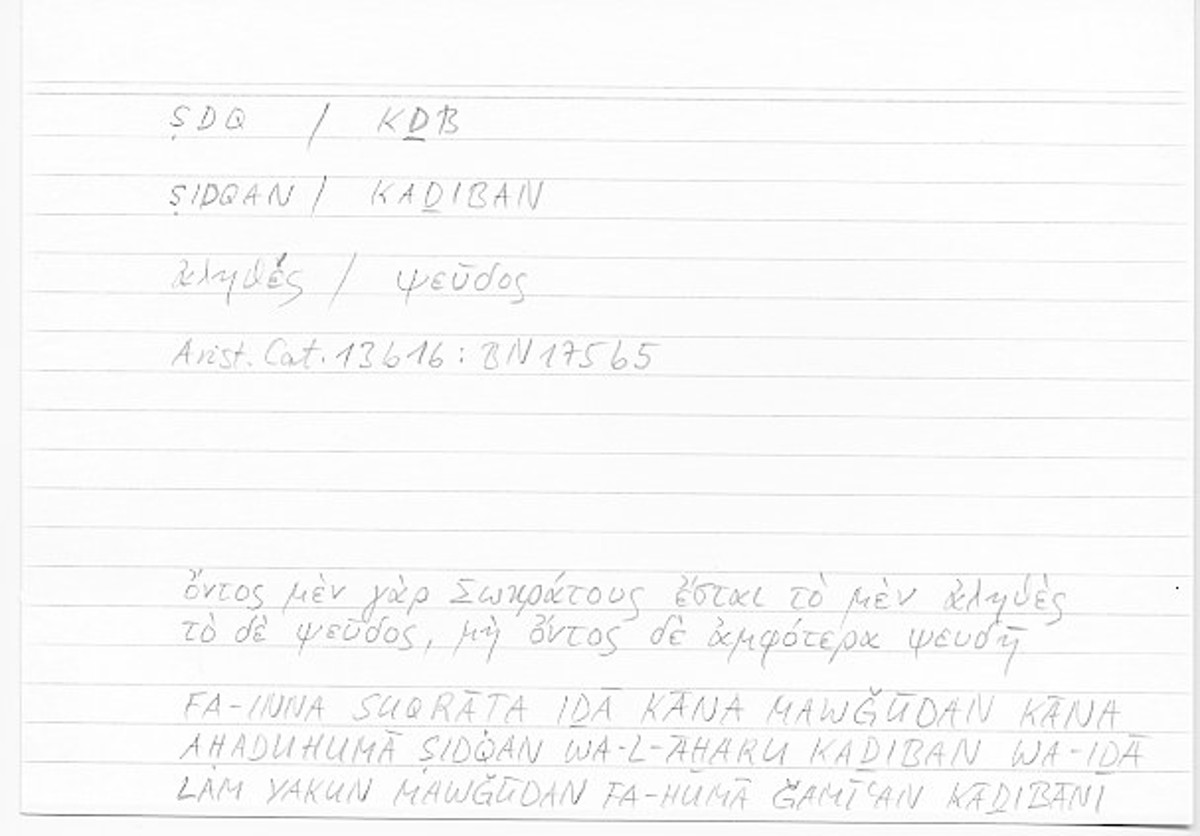 ṢDQ / KḎB
ṢIDQAN / KAḎIBAN
ἀληθές / ψεῦδος
Arist. Cat. 13b16: BN 175b5
ὄντος μὲν γὰρ Σωκράτους ἔσται τὸ μὲν ἀληθὲς
τὸ δὲ ψεῦδος, μὴ ὄντος δὲ ἀμφότερα ψευδῆ
FA-INNA SUQRĀṬA IḎĀ KĀNA MAWǦŪDAN KĀNA
AḤADUHUMĀ ṢIDQAN WA-L-ĀḪARU KAḎIBAN WA-IḎĀ
LAM YAKUN MAWǦŪDAN FA-HUMĀ ǦAMĪʿAN KĀḎIBĀNI